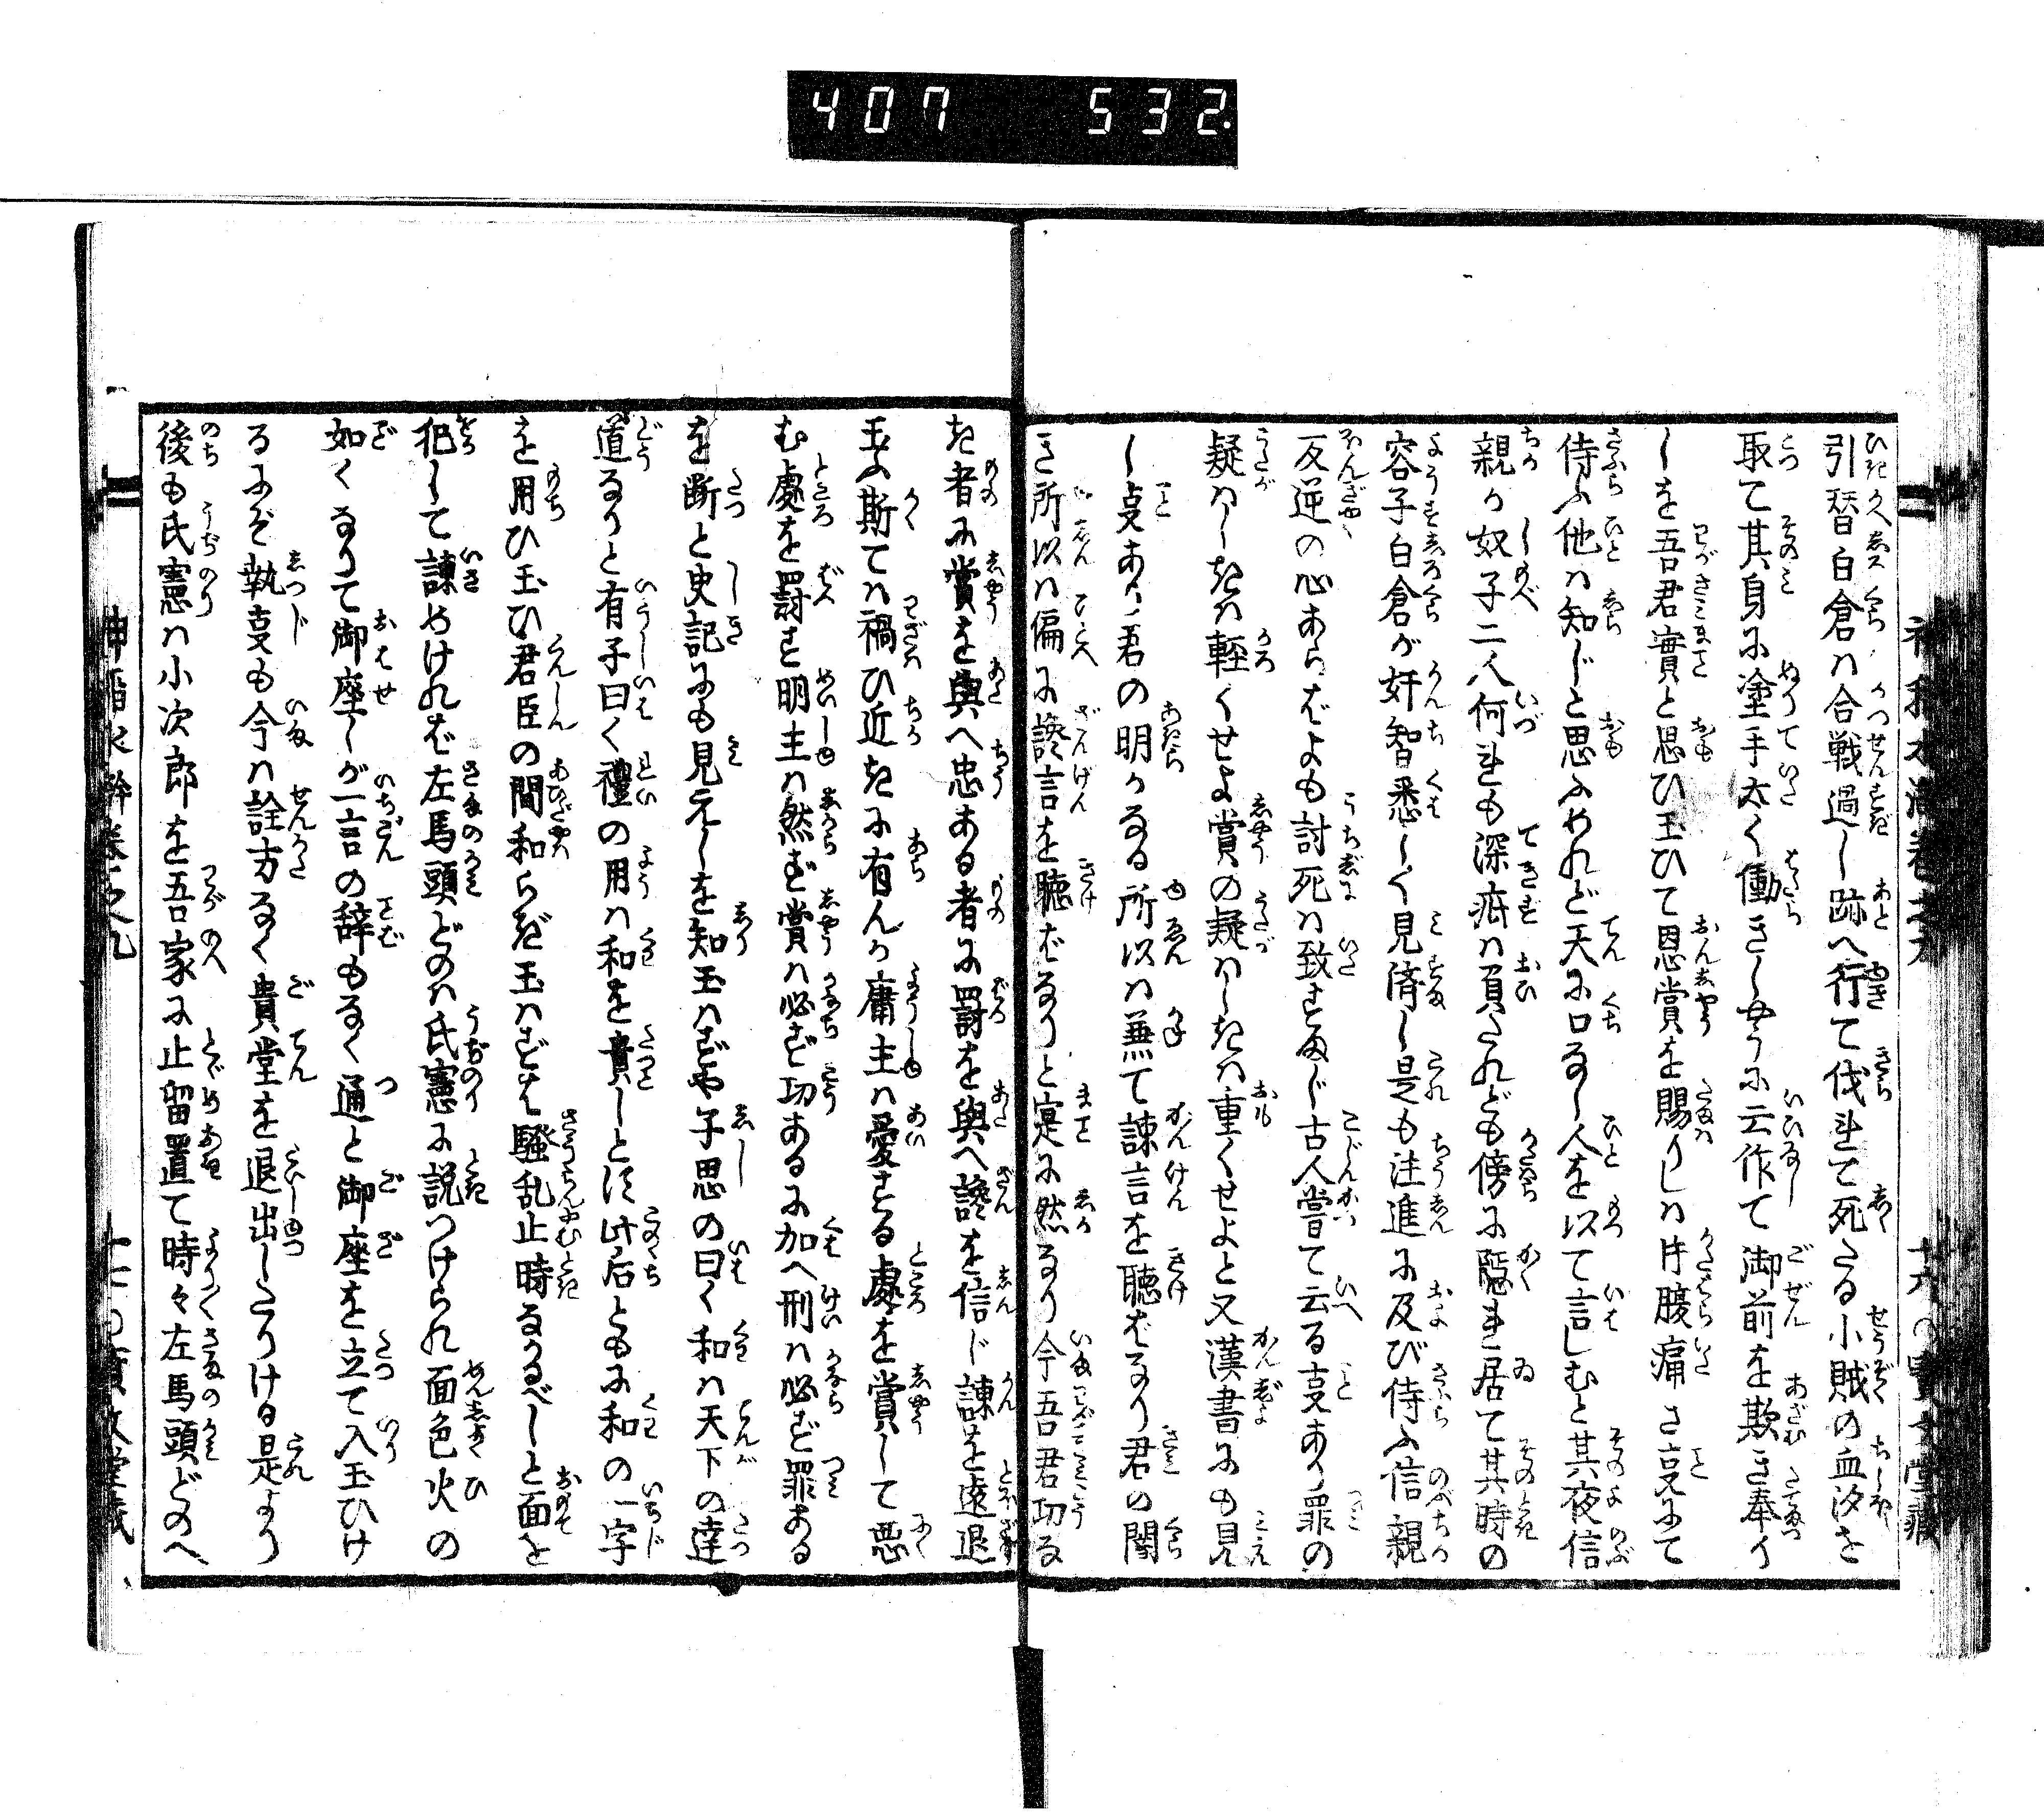 407 532.
引替白倉ハ合戦過し跡へ行て伐れて死たる小賊の血汐を
取て其身に塗手太く働きし様に云作て御前を欺き奉り
しを吾君實と思ひ玉ひて恩賞を賜りしハ片腹痛き事にて
侍ふ他ハ知じと思ふめれど天に口なし人を以て言しむと其夜信
親が奴子二人何れも深疵ハ負たれども傍に隠れ居て其時の
容子白倉が奸智悉しく見済し是も注進に及び侍ふ信親
反逆の心あらばよも討死ハ致すまじ古人嘗て云る事あり罪の
疑ハしきハ輕くせよ賞の疑ハしきハ重くせよと又漢書にも見
し事あり君の明かなる所以ハ兼て諫言を聴ばなり君の闇
き所以ハ偏に讒言を聴ばなりと寔に然なり今吾君功な
き者に賞を與へ忠ある者に罸を與へ讒を信じ諫を遠退
玉ふ斯てハ禍ひ近きに有んか庸主ハ愛する處を賞して悪
む處を罸す明主ハ然ず賞ハ必ず功あるに加へ刑ハ必ず罪ある
を断と史記にも見えしを知玉ハずや子思の曰く和ハ天下の達
道なりと有子曰く禮の用ハ和を貴しとす此后ともに和の一字
を用ひ玉ひ君臣の間和らぎ玉ハずば騒乱止時なかるべしと面を
犯して諫めけれど左馬頭どのハ氏憲に説つけられ面色火の
如くなりて御座しが一言の辞もなく通と御座を立て入玉ひけ
るにぞ執事も今ハ詮方なく貴堂を退出したりける是より
後も氏憲ハ小次郎を吾家に止留置て時々左馬頭どのへ